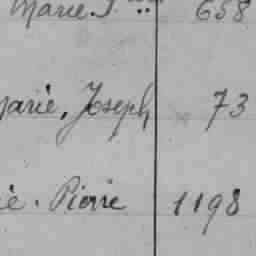 Marie. J 658
Marie, Joseph 73
ie. Pierre 1198